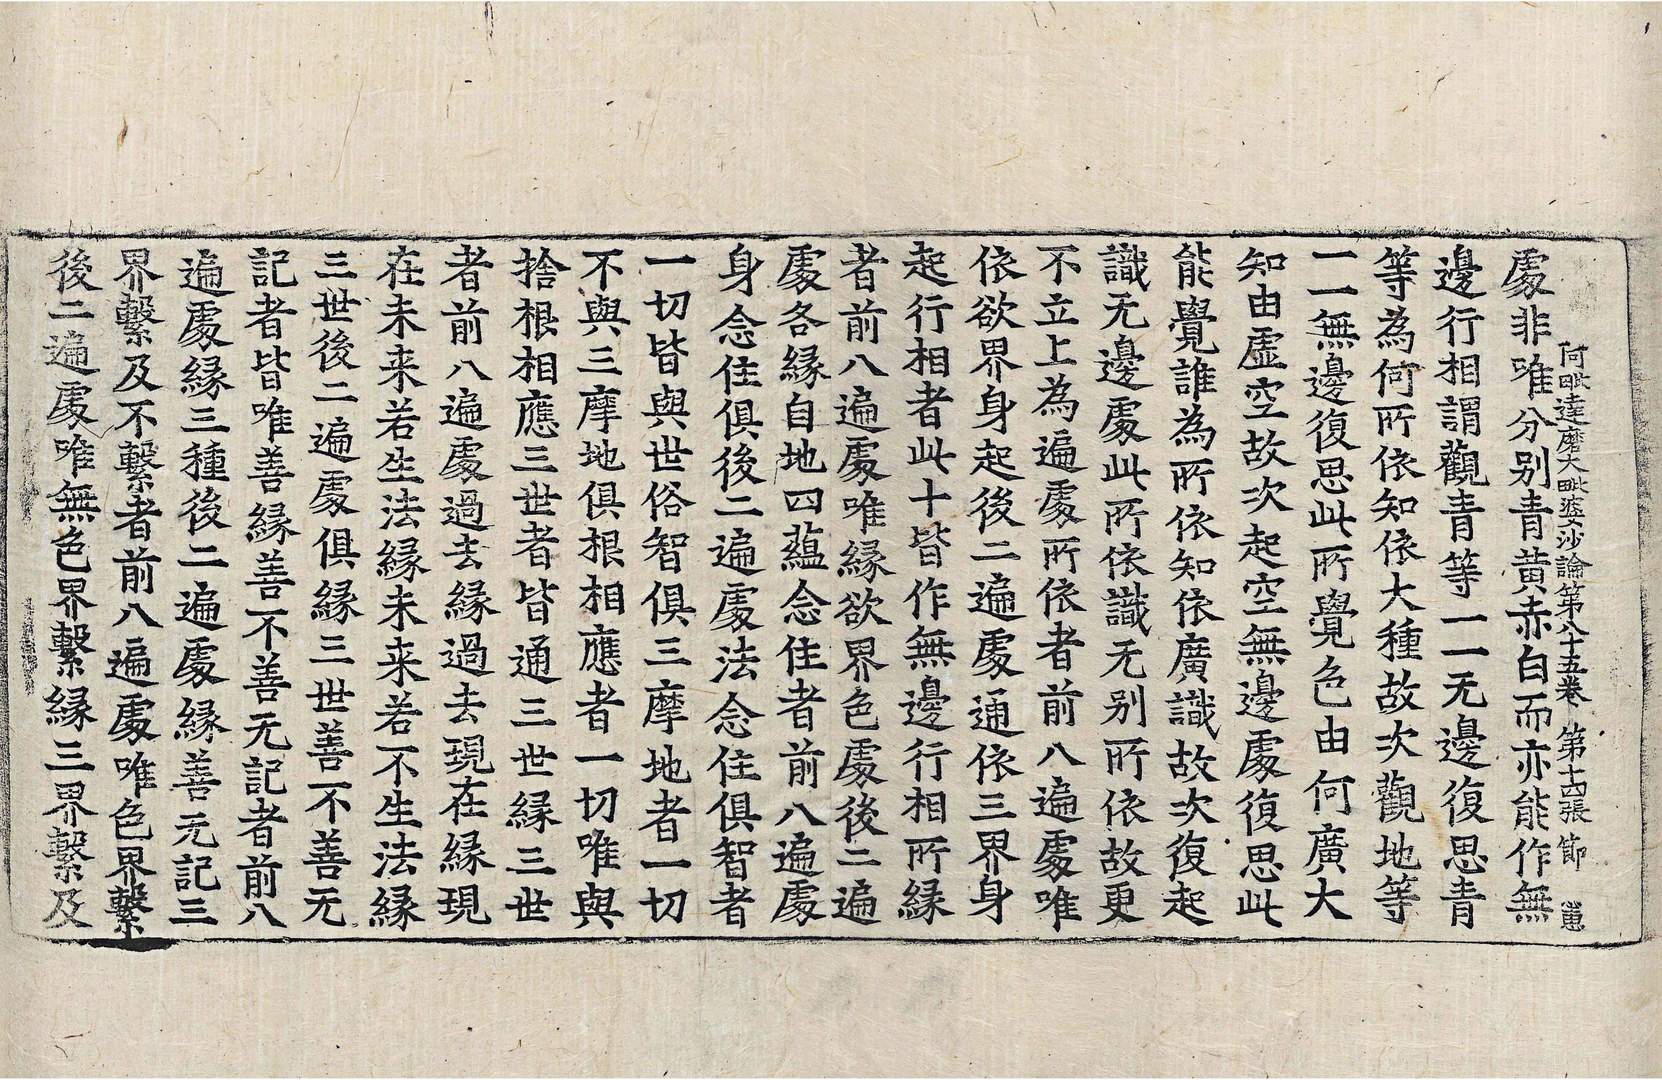 阿毗達磨大毗婆沙論第八十五卷 第十四張 節
處非唯分别青黄赤白而亦能作無
邊行相謂觀青等一一无邊復思青
等為何所依知依大種故次觀地等
一一無邊復思此所覺色由何廣大
知由虛空故次起空無邊處復思此
能覺誰為所依知依廣識故次復起
識无邊處此所依識无别所依故更
不立上為遍處所依者前八遍處唯
依欲界身起後二遍處通依三界身
起行相者此十皆作無邊行相所緣
者前八遍處唯緣欲界色處後二遍
處各緣自地四蘊念住者前八遍處
身念住俱後二遍處法念住俱智者
一切皆與世俗智俱三摩地者一切
不與三摩地俱根相應者一切唯與
捨根相應三世者皆通三世緣三世
者前八遍處過去緣過去現在緣現
在未来若生法緣未来若不生法緣
三世後二遍處俱緣三世善不善无
記者皆唯善緣善不善无記者前八
遍處緣三種後二遍處緣善无記三
界繫及不繫者前八遍處唯色界繫
後二遍處唯無色界繫緣三界繫及